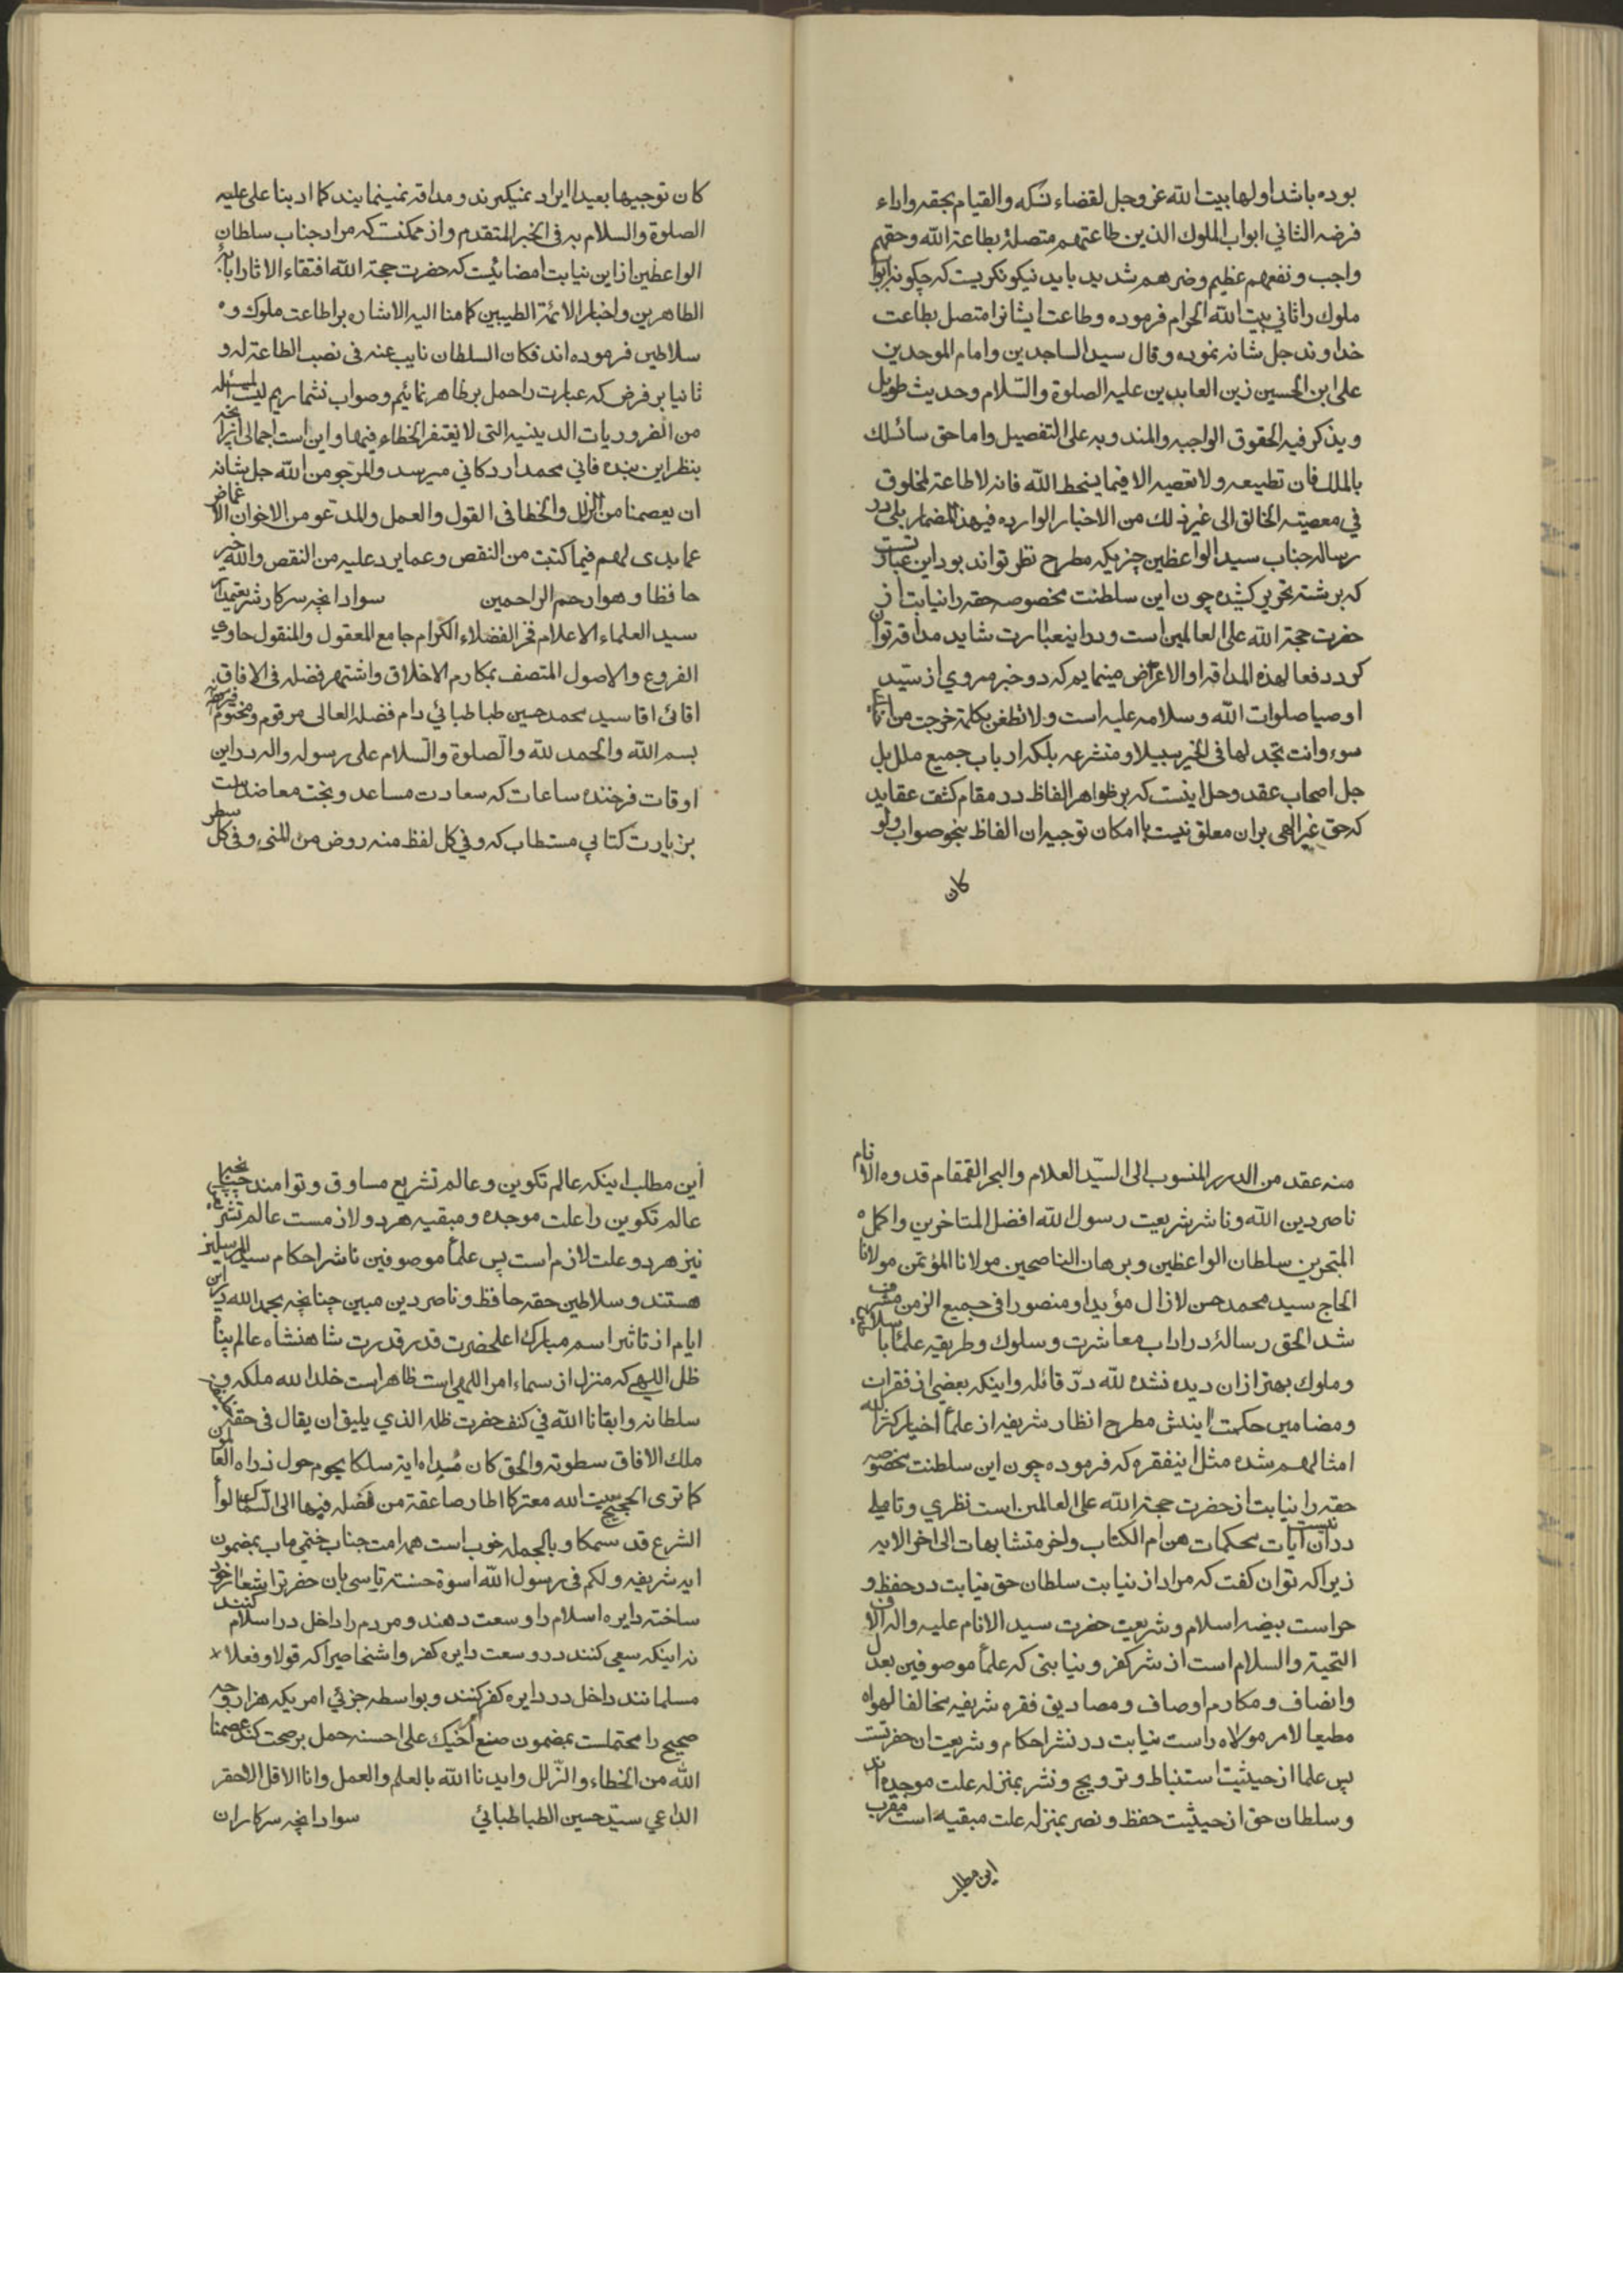 بوده باشد اولها بیت الله عز وجل لقضاء نسکه والقیام بحقه واداء
فرضه الثانی ابواب الملوک الذین طاعتهم متصلة بطاعة الله وحقهم
واجب ونفعهم عظیم وضرهم شدید باید نیکو نکریست که چکونه ابواب
ملوک را ثانی بیت الله الحرام فرموده وطاعت ایشانرا متصل بطاعت
خداوند جل شانه نموده وقال سید الساجدین وامام الموحدین
علی ابن الحسین زین العابدین علیه الصلوة والسلام وحدیث طویل
ویذکر فیه الحقوق الواجبه والمندوبه علی التفصیل واما حق سائسک
بالملک فان تطیعه ولا تعصیه الا فیما یسخط الله فانه لا طاعة لمخلوق
فی معصیته الخالق الی غیر ذلک من الاخبار الوارده فی هذا المضمار بلی در
رساله جناب سید الواعظین چیزیکه مطرح نظر تواند بود این عبارتست
که برشته تحریر کشیده چون این سلطنت مخصوصه حقه را نیابت از
حضرت حجة الله علی العالمین است ودر اینعبارت شاید مداقه توان
کرد دفعا لهذه المداقه او الاعتراض مینمایم که دو خبر مروی از سید
اوصیا صلوات الله وسلامه علیه است ولا تظنن بکلمة خرجت من
سوء وانت تجد لها فی الخیر سبیلا ومتشرعه بلکه ارباب جمیع ملل بل
جل اصحاب عقد وحل اینست که بر ظواهر الفاظ در مقام کشف عقاید
که حق غیر الهی بران معلق نیست با امکان توجیه ان الفاظ بنحو صواب ولو
کان
کان توجیها بعیدا ایراد نمیکیرند ومداقه نمینمایند کما ادبنا علی علیه
الصلوة والسلام به فی الخبر المتقدم واز ممکنت که مراد جناب سلطان
الواعظین از این نیابت امضائیست که حضرت حجة الله اقتفاء الاثار ابائه
الطاهرین واخبار الائمة الطیبین کما منا الیه الاشاره بر اطاعت ملوک و
سلاطین فرموده اند فکان السلطان نایب عنه فی نصب الطاعة له و
ثانیا بر فرض که عبارت را حمل بر ظاهر نمائیم وصواب نشماریم لیست المسئله
من الضروریات الدینیه التی لا یغتفر الخطاء فیها واین است اجمالی انچه
بنظر این بنده فانی محمد اردکانی میرسد والمرجو من الله جل شانه
ان یعصمنا من الزلل والخطا فی القول والعمل والمدعو من الاخوان الاغماض
عما بدی لهم فیما کتبت من النقص وعما یرد علیه من النقص والله خیر
حافظا وهو ارحم الراحمین سواد انچه سرکار شریعتمدار
سید العلماء الاعلام فخر الفضلاء الکرام جامع المعقول والمنقول حاوی
الفروع والاصول المتصف بمکارم الاخلاق واشتهر فضله فی الافاق
اقائی اقا سید محمد حسین طباطبائی دام فضله العالی مرقوم ومختوم
بسم الله والحمد لله والصلوة والسلام علی رسوله واله در این
اوقات فرخنده ساعات که سعادت مساعد وبخت معاضد است
بزیارت کتابی مستطاب که وفی کل لفظ منه روض من المنی وفی کل سطر
منه عقد من الدرر المنسوب الی السید العلام والبحر القمقام قدوه الانام
ناصر دین الله وناشر شریعت رسول الله افضل المتاخرین واکمل
المتبحرین سلطان الواعظین وبرهان الناصحین مولانا المؤتمن مولانا
الحاج سید محمد حسن لازال مؤیدا ومنصورا فی جمیع الزمن مشرف
شد الحق رساله در اداب معاشرت وسلوک وطریقه علما با سلاطین
وملوک بهتر از ان دیده نشده لله در قائله واینکه بعضی از فقرات
ومضامین حکمت ایندش مطرح انظار شریفه از علما اخیار کثر الله
امثالهم شده مثل اینفقره که فرموده چون این سلطنت مخصوصه
حقه را نیابت از حضرت حجة الله علی العالمین است نظری وتاملی
در ان نیست آیات محکمات هن ام الکتاب واخر متشابهات الی اخر الایه
زیرا که توان کفت که مراد از نیابت سلطان حق نیابت در حفظ و
حراست بیضه اسلام وشریعت حضرت سید الانام علیه واله الاف
التحیة والسلام است از شر کفر ونیابتی که علما موصوفین بعدل
وانصاف ومکارم اوصاف ومصادیق فقره شریفه مخالفا لهواه
مطیعا لامر مولاه راست نیابت در نشر احکام وشریعت ان حضرتست
پس علما از حیثیت استنباط وترویج ونشر بمنزله علت موجده اند
وسلطان حق از حیثیت حفظ ونصر بمنزله علت مبقیه است مقرب
این مطلب
این مطلب اینکه عالم تکوین وعالم تشریع مساوق وتوامند چنانچه
عالم تکوین را علت موجده ومبقیه هر دو لازمست عالم تشریع
نیز هر دو علت لازم است پس علما موصوفین ناشر احکام سید المرسلین
هستند وسلاطین حقه حافظ وناصر دین مبین چنانچه بحمد الله در این
ایام از تاثیر اسم مبارک اعلحضرت قدر قدرت شاهنشاه عالم پناه
ظل اللهی که منزل از سماء امر اللهی است ظاهر است خلد الله ملکه
سلطانه وابقانا الله فی کنف حضرت ظله الذی یلیق ان یقال فی حقه
ملک الافاق سطوته والحق کان مبداه ایة سلکا یحوم حول ذراه العالمون
کما تری الحجیج ببیت الله معترکا اطار صاعقة من فضله فیها الی السما
الشرع قد سمکا وبالجمله خوب است همه امت جناب ختمی ماب بمضمون
ایه شریفه ولکم فی رسول الله اسوة حسنة تاسی بان حضرترا شعار خود
ساخته دایره اسلام را وسعت دهند ومردم را داخل در اسلام کنند
نه اینکه سعی کنند در وسعت دایره کفر واشخاصیرا که قولا وفعلا
مسلمانند داخل در دایره کفر کنند وبواسطه جزئی امریکه هزار وجه
صحیح را محتملست بمضمون صنع اخیک علی احسنه حمل بر صحت کنند عصمنا
الله من الخطاء والزلل وایدنا الله بالعلم والعمل وانا الاقل الاحقر
الداعی سید حسین الطباطبائی سواد انچه سرکاران